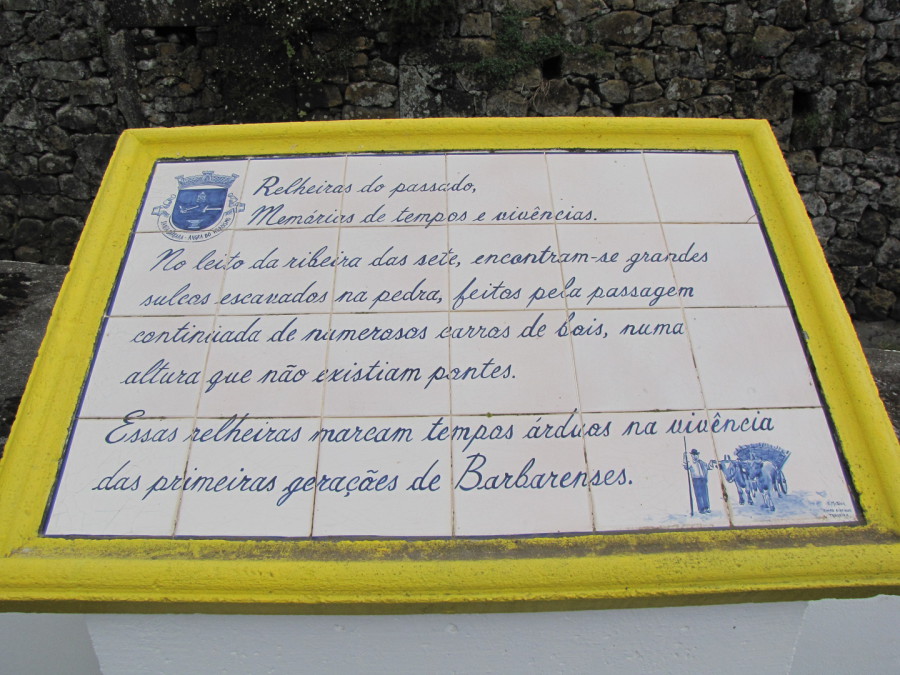 Relheiras do passado,
Memórias de tempos e vivências.
No leito da ribeira das sete, encontram-se grandes
sulcos escavados na pedra, feitos pela passagem
continuada de numerosos carros de bois, numa
altura que não existiam pontes.
Essas relheiras marcam tempos árduos na vivência
das primeiras gerações de Barbarenses.